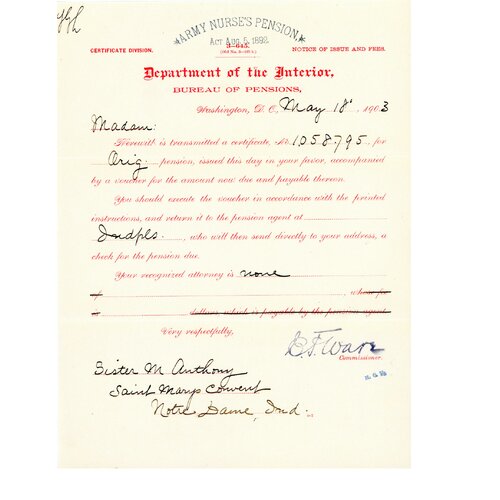 ARMY NURSE'S PENSION,
ACT AUG. 5, 1892.
3-645.
CERTIFICATE DIVISION.
NOTICE OF ISSUE AND FEES.
Department of the Interior,
BUREAU OF PENSIONS,
Washington, D. C., May 18, 1903
Madam:
Herewith is transmitted a certificate, No. 1,058,795, for
Orig. pension, issued this day in your favor, accompanied
by a voucher for the amount now due and payable thereon.
You should execute the voucher in accordance with the printed
instructions, and return it to the pension agent at
Indpls., who will then send directly to your address, a
check for the pension due.
Your recognized attorney is none
, whose fee
is dollars, which is payable by the pension agent.
Very respectfully,
E. F. Ware
Commissioner.
Sister M Anthony
Saint Marys Convent
Notre Dame, Ind.